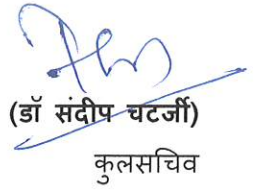 (डॉ संदीप चटर्जी)
कुलसचिव